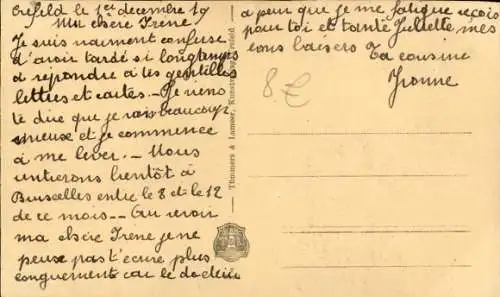 Crefeld le 1er decembre 19
Ma chère Irène,
Je suis vraiment confuse
d'avoir tardé si longtemps
à repondre à tes gentilles
lettres et cartes. - Je viens
te dire que je vais beaucoup
mieux et je commence
à me lever. - Nous
rentrerons bientôt à
Bruxelles entre le 8 et le 12
de ce mois -- Au revoir
ma chère Irène je ne
peux pas t'ecrire plus
longuement car le docteur
a peur que je me fatigue reçois
pour toi et tante Juliette mes
bons baisers Ta cousine
Yvonne
8 £
Thomners & Lamoer, Kunstverlag, Crefeld